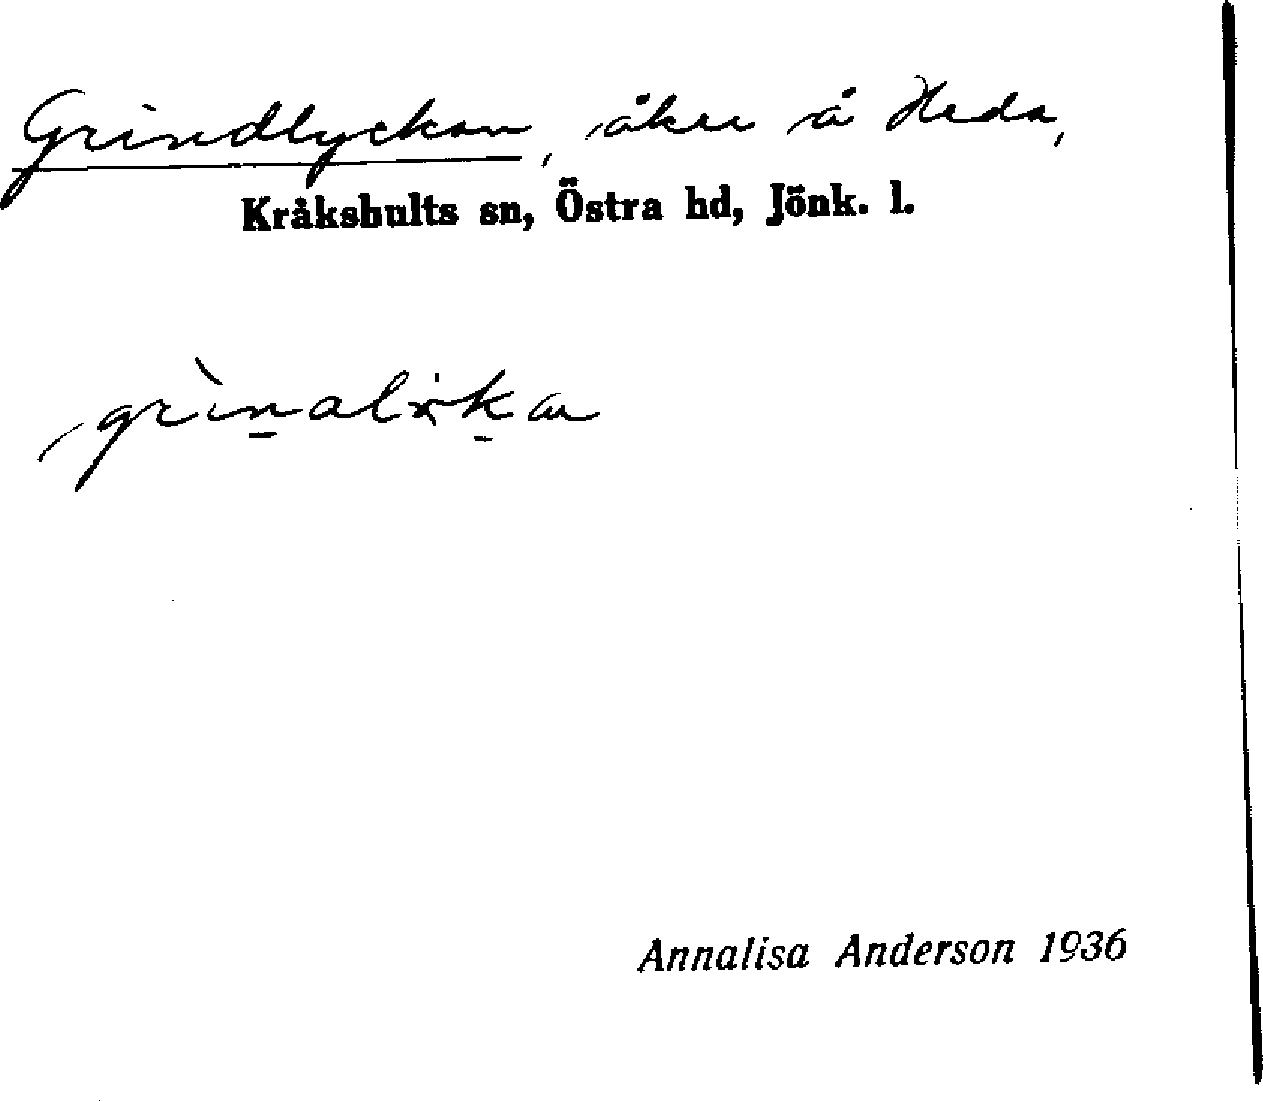 Grindlyckan, åker å Heda,
Kråkshults sn, Östra hd, Jönk. l.
Annalisa Anderson 1936